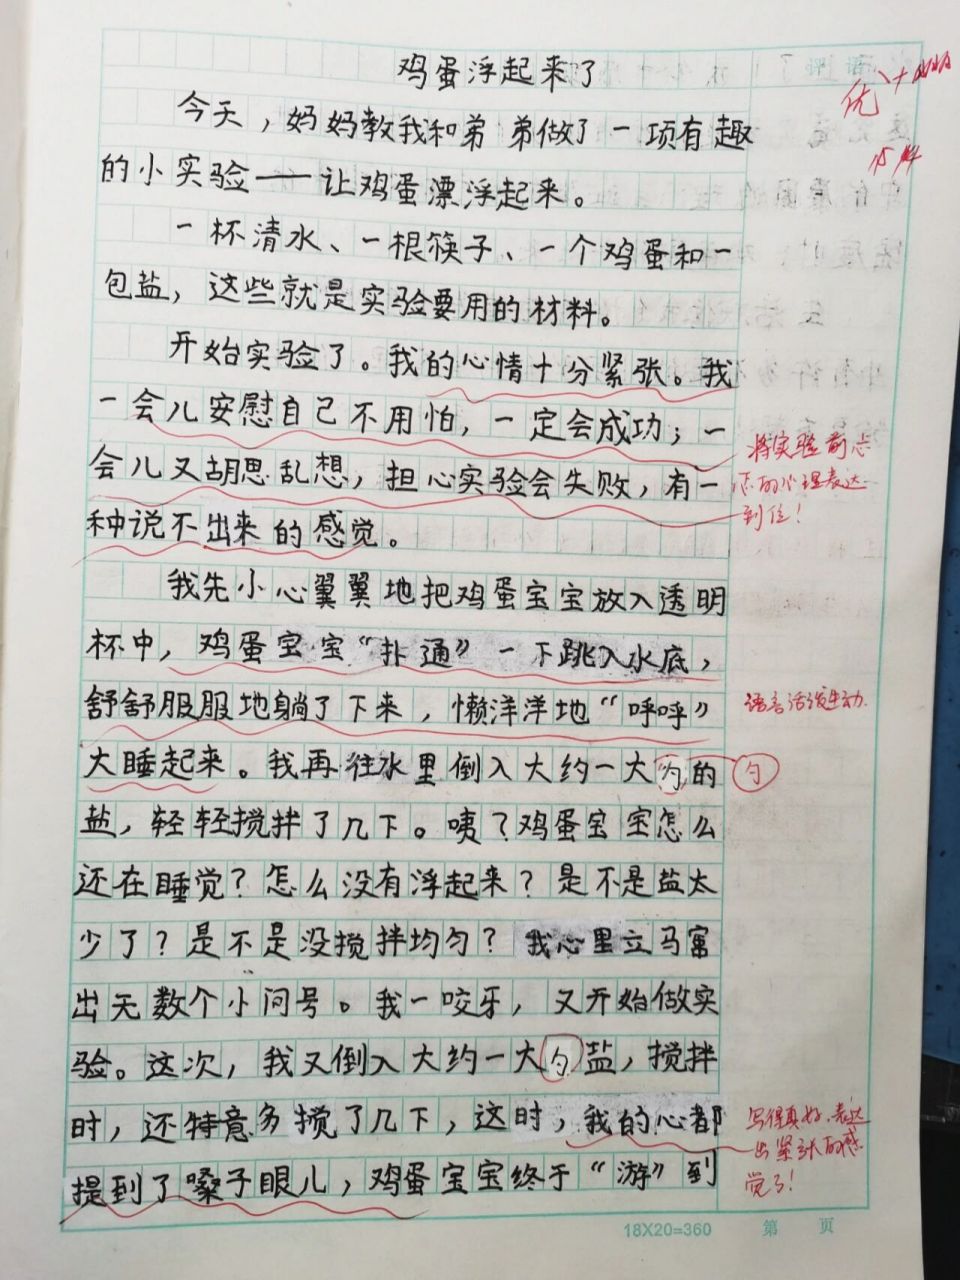 鸡蛋浮起来了
评语
优
今天，妈妈教我和弟弟做了一项有趣
的小实验——让鸡蛋漂浮起来。
一杯清水、一根筷子、一个鸡蛋和一
包盐，这些就是实验要用的材料。
开始实验了。我的心情十分紧张。我
一会儿安慰自己不用怕，一定会成功；一
会儿又胡思乱想，担心实验会失败，有一
种说不出来的感觉。
将实验前忐
忑的心理表达
到位！
我先小心翼翼地把鸡蛋宝宝放入透明
杯中，鸡蛋宝宝“扑通”一下跳入水底，
舒舒服服地躺了下来，懒洋洋地“呼呼”
语言活泼生动.
大睡起来。我再往水里倒入大约一大勺的
勺
盐，轻轻搅拌了几下。咦？鸡蛋宝宝怎么
还在睡觉？怎么没有浮起来？是不是盐太
少了？是不是没搅拌均匀？我心里立马冒
出无数个小问号。我一咬牙，又开始做实
验。这次，我又倒入大约一大勺盐，搅拌
时，还特意多搅了几下，这时，我的心都
提到了嗓子眼儿，鸡蛋宝宝终于“游”到
写得真好.表达
出紧张的感
觉了！
18X20=360 第 页